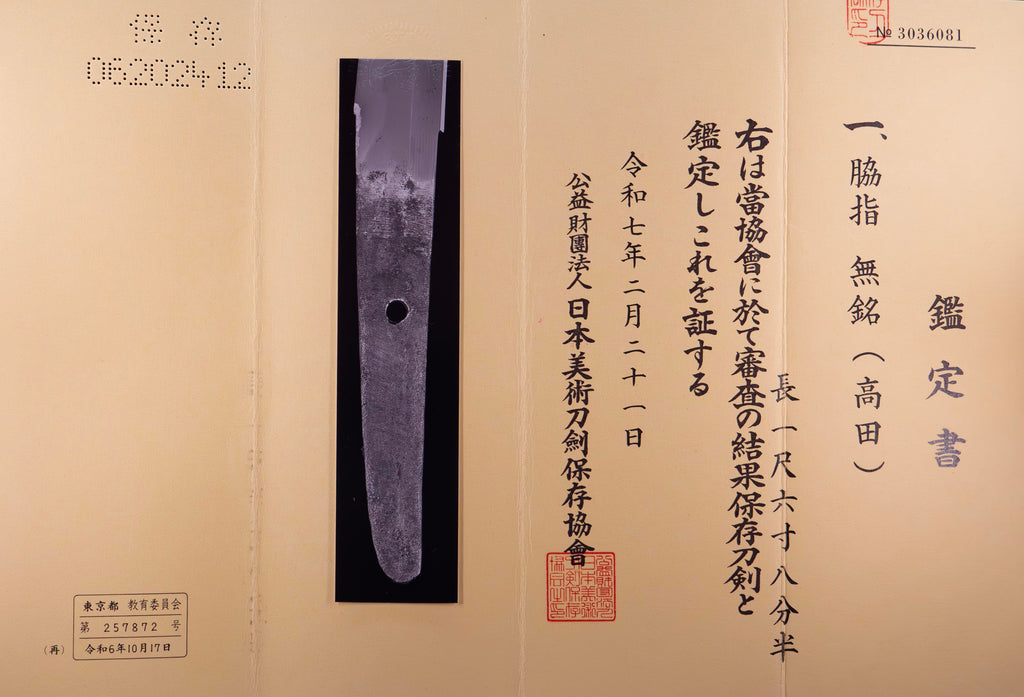 № 3036081
鑑定書
一、脇指 無銘(高田)
長一尺六寸八分半
右は當協會に於て審査の結果保存刀剣と
鑑定しこれを証する
令和七年二月二十一日
公益財團法人 日本美術刀劍保存協會
保存
06202412
東京都 教育委員会
第 257872 号
(再) 令和6年10月17日